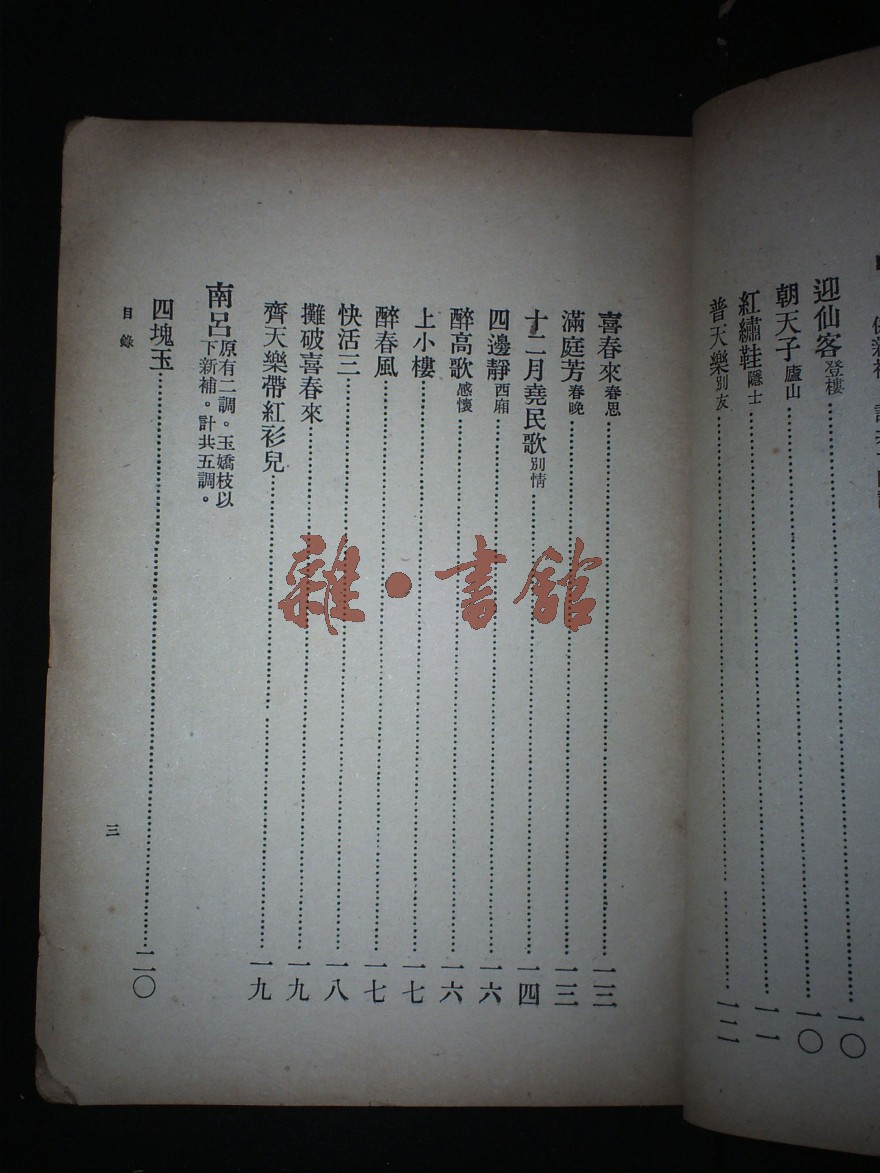 迎仙客登樓……一〇
朝天子廬山……一〇
紅繡鞋隱士……一一
普天樂別友……一二
喜春來春思……一三
滿庭芳春晚……一三
十二月堯民歌別情……一四
四邊靜西廂……一六
醉高歌感懷……一六
上小樓……一七
醉春風……一七
快活三……一八
攤破喜春來……一九
齊天樂帶紅衫兒……一九
南呂原有二調。玉嬌枝以下新補。計共五調。
四塊玉……二〇
目錄
三
雜·書館